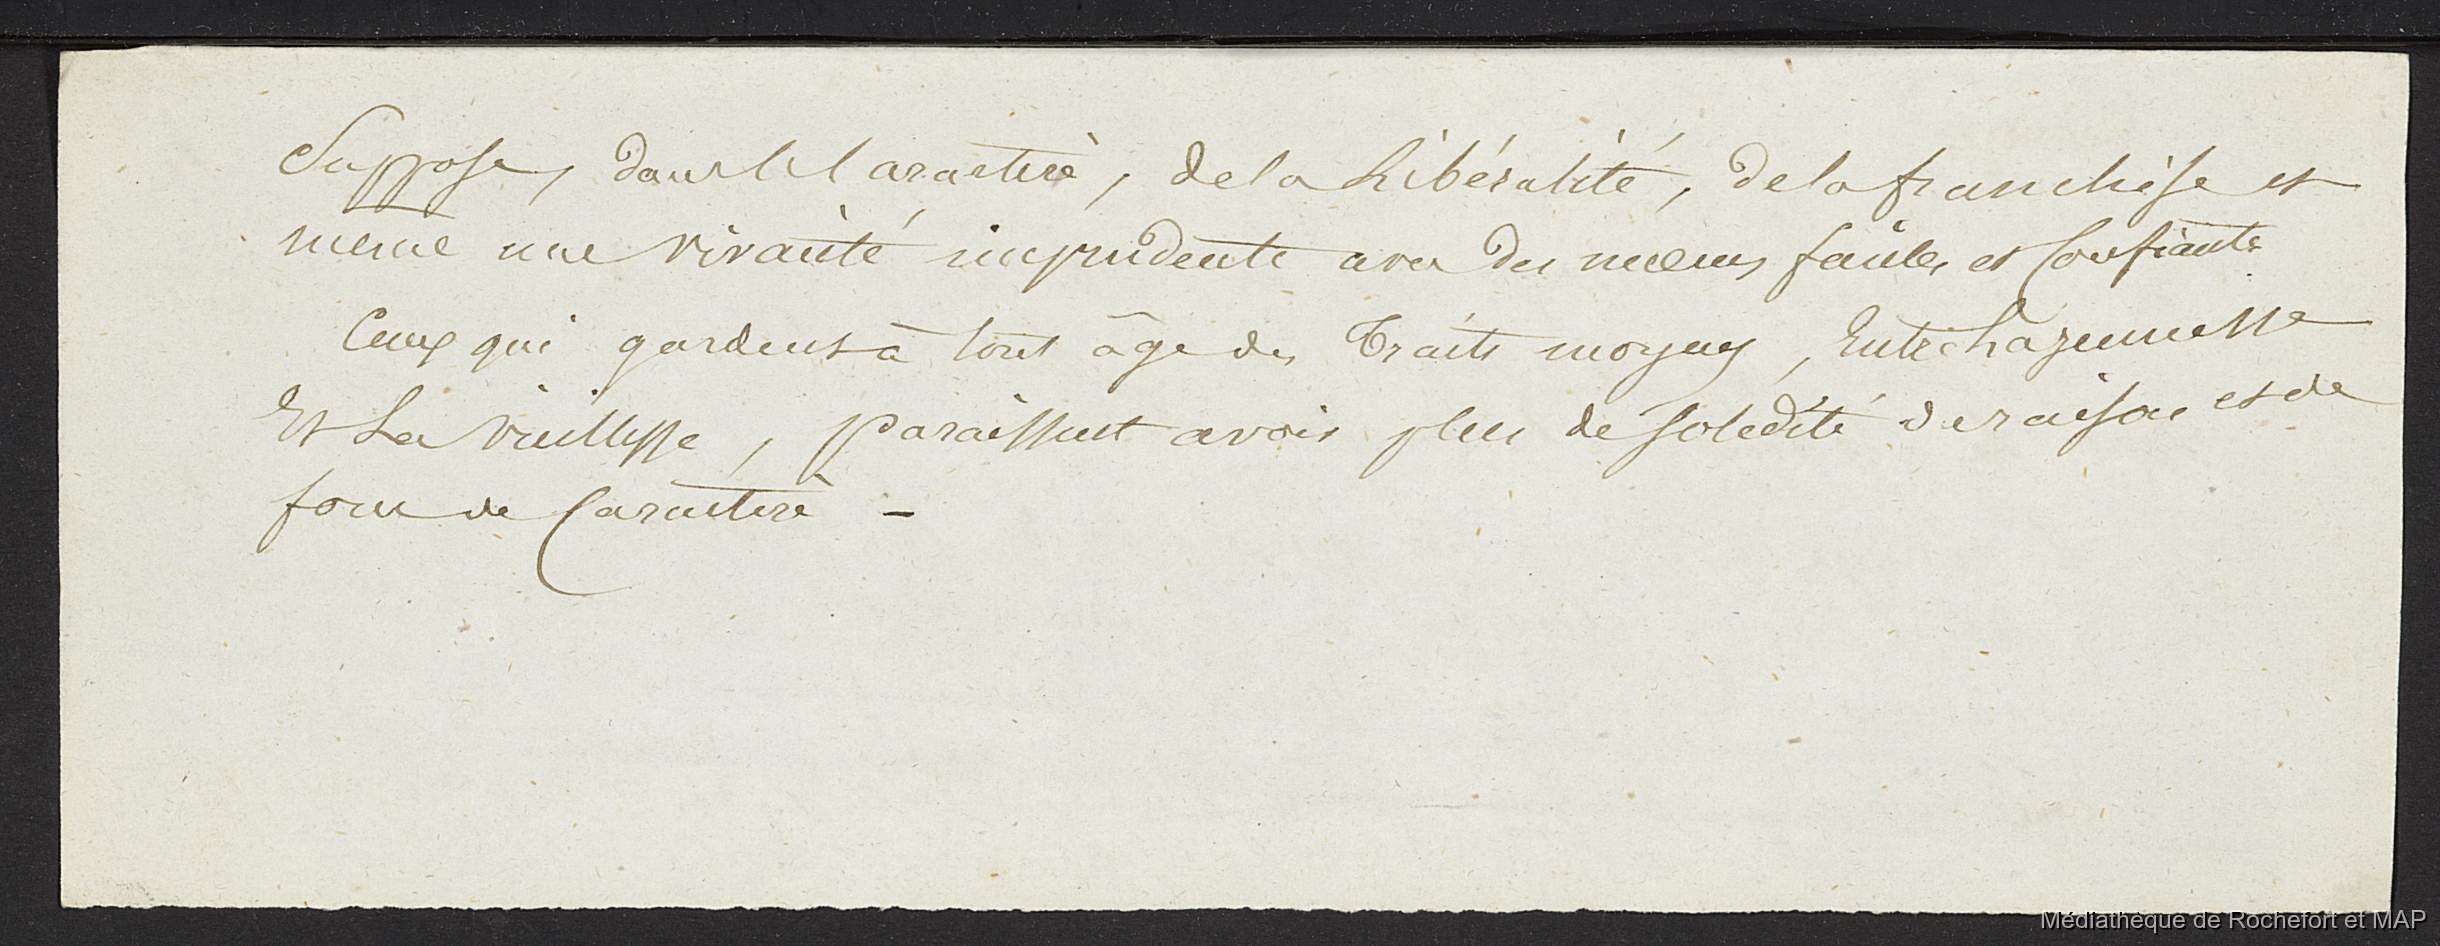 Suppose, dans le Caractère, de la Libéralité, de la franchise et
même une vivacité imprudente avec des mœurs faciles et Confiantes
Ceux qui gardent à tout âge des Traits moyens, Entre La jeunesse
Et La vieillesse, paraissent avoir plus de solidité de raison et de
force de Caractère -
Médiathèque de Rochefort et MAP